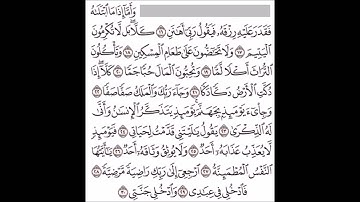 وَأَمَّا إِذَا مَا ابْتَلَاهُ
فَقَدَرَ عَلَيْهِ رِزْقَهُ، فَيَقُولُ رَبِّي أَهَانَنِ ١٦ كَلَّا بَل لَّا تُكْرِمُونَ
الْيَتِيمَ ١٧ وَلَا تَحَاضُّونَ عَلَى طَعَامِ الْمِسْكِينِ ١٨ وَتَأْكُلُونَ
التُّرَاثَ أَكْلًا لَّمًّا ١٩ وَتُحِبُّونَ الْمَالَ حُبًّا جَمًّا ٢٠ كَلَّا إِذَا
دُكَّتِ الْأَرْضُ دَكًّا دَكًّا ٢١ وَجَاءَ رَبُّكَ وَالْمَلَكُ صَفًّا صَفًّا ٢٢
وَجِاْيءَ يَوْمَئِذٍ بِجَهَنَّمَ يَوْمَئِذٍ يَتَذَكَّرُ الْإِنسَانُ وَأَنَّى
لَهُ الذِّكْرَى ٢٣ يَقُولُ يَالَيْتَنِي قَدَّمْتُ لِحَيَاتِي ٢٤ فَيَوْمَئِذٍ
لَّا يُعَذِّبُ عَذَابَهُ أَحَدٌ ٢٥ وَلَا يُوثِقُ وَثَاقَهُ أَحَدٌ ٢٦ يَاأَيَّتُهَا
النَّفْسُ الْمُطْمَئِنَّةُ ٢٧ ارْجِعِي إِلَى رَبِّكِ رَاضِيَةً مَّرْضِيَّةً ٢٨
فَادْخُلِي فِي عِبَادِي ٢٩ وَادْخُلِي جَنَّتِي ٣٠